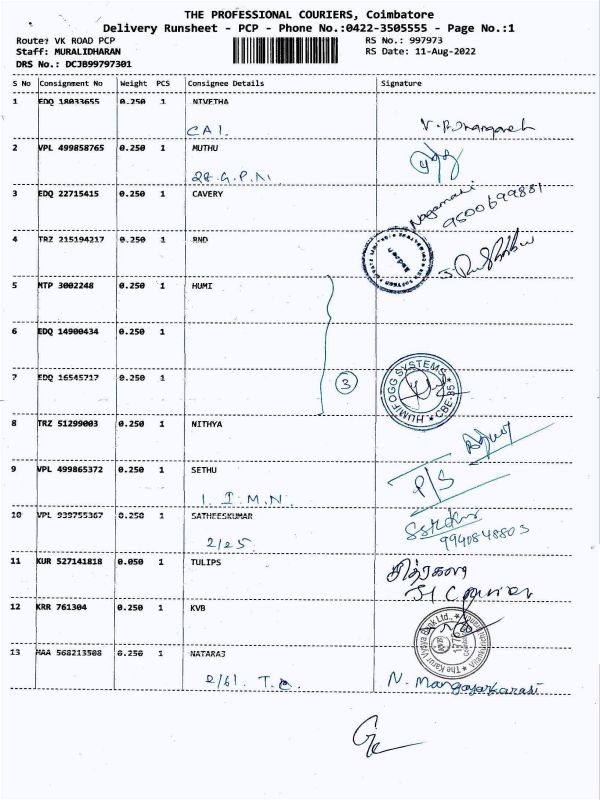 THE PROFESSIONAL COURIERS, Coimbatore
Delivery Runsheet - PCP - Phone No.:0422-3505555 - Page No.:1
Route: VK ROAD PCP
RS No.: 997973
Staff: MURALIDHARAN
RS Date: 11-Aug-2022
DRS No.: DCJB99797301
S No Consignment No Weight PCS Consignee Details Signature
1 EDQ 18033655 0.250 1 NIVETHA
CAI.
2 VPL 499858765 0.250 1 MUTHU
28.G.P.N.
3 EDQ 22715415 0.250 1 CAVERY
Nagamani
9500699881
4 TRZ 215194217 0.250 1 RND
5 MTP 3002248 0.250 1 HUMI
6 EDQ 14900434 0.250 1
7 EDQ 16545717 0.250 1
3
HUMIFOGG SYSTEMS
CBE-85
8 TRZ 51299003 0.250 1 NITHYA
9 VPL 499865372 0.250 1 SETHU
1. I.M.N.
P/S
10 VPL 939755367 0.250 1 SATHEESKUMAR
2/25.
9940848803
11 KUR 527141818 0.050 1 TULIPS
சித்ரகலா
12 KRR 761304 0.250 1 KVB
The Karur Vysya Bank Ltd.,
13 MAA 568213508 0.250 1 NATARAJ
2/61. T.C.
N. Mangayarkarasi